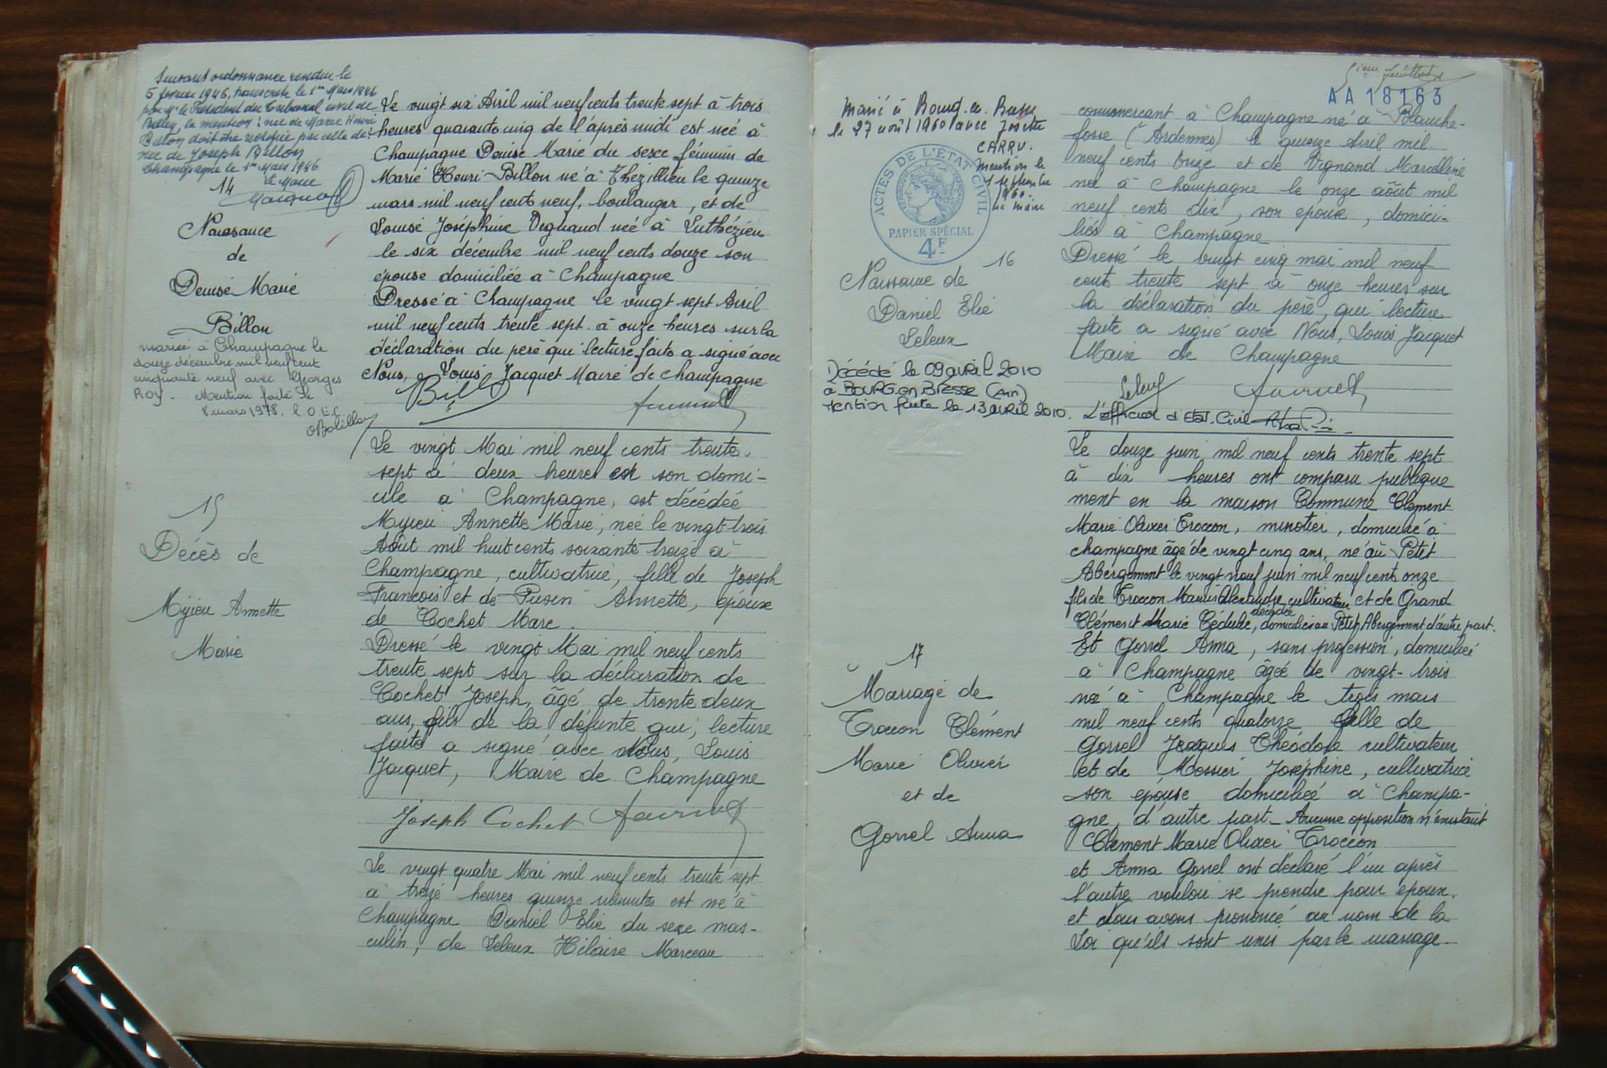 Suivant ordonnance rendue le
5 février 1946, transcrite le 1er Mars 1946
par Mr le Président du Tribunal civil de
Belley, la mention : née de Marie Henri
Billon doit être rectifiée par celle de :
née de Joseph Billon
Champagne le 1er Mars 1946
Le Maire
14
Naissance
de
Denise Marie
Billon
mariée à Champagne le
douze décembre mil neuf cent
cinquante neuf avec Georges
ROY. Mention faite le
8 mars 1978. L'O.E.C
Le vingt six Avril mil neuf cents trente sept à trois
heures quarante cinq de l'après midi est née à
Champagne Denise Marie du sexe féminin de
Marie Henri Billon né à Thézillieu le quinze
mars mil neuf cents neuf, boulanger, et de
Louise Joséphine Vegnaud née à Luthézieu
le six décembre mil neuf cents douze son
épouse domiciliée à Champagne
Dressé à Champagne le vingt sept Avril
mil neuf cents trente sept à onze heures sur la
déclaration du père qui lecture faite a signé avec
Nous, Louis Jacquet Maire de Champagne
15
Décès de
Myieu Annette
Marie
Le vingt Mai mil neuf cents trente
sept à deux heures est son domi-
cile à Champagne, est décédée
Myieu Annette Marie, née le vingt trois
Août mil huit cents soixante treize à
Champagne, cultivatrice, fille de Joseph
François et de Pusin Annette, épouse
de Cochet Marc.
Dressé le vingt Mai mil neuf cents
trente sept sur la déclaration de
Cochet Joseph, âgé de trente deux
ans, fils de la défunte qui, lecture
faite a signé avec Nous, Louis
Jacquet, Maire de Champagne
Joseph Cochet
Le vingt quatre Mai mil neuf cents trente sept
à treize heures quinze minutes est né à
Champagne Daniel Elie du sexe mas-
culin, de Leleux Hilaire Marceau
AA 18163
Marié à Bourg-en-Bresse
le 27 août 1960 avec Josette
CARRU.
mention le
septembre
1960.
Le maire
ACTES DE L'ETAT CIVIL
PAPIER SPÉCIAL
4F
16
Naissance de
Daniel Elie
Leleux
Décédé le 09 avril 2010
à BOURG en BRESSE (Ain)
Mention faite le 13 avril 2010. L'officier d'Etat-Civil
commerçant à Champagne né à Blanche-
fosse (Ardennes) le quinze Avril mil
neuf cents onze et de Vignand Marcelline
née à Champagne le onze août mil
neuf cents dix, son épouse, domici-
liés à Champagne
Dressé le vingt cinq mai mil neuf
cent trente sept à onze heures sur
la déclaration du père, qui lecture
faite a signé avec Nous, Louis Jacquet
Maire de Champagne
17
Mariage de
Trocon Clément
Marie Olivier
et de
Gorrel Anna
Le douze juin mil neuf cents trente sept
à dix heures ont comparu publique
ment en la maison Commune Clément
Marie Olivier Trocon, minotier, domicilié à
champagne âgé de vingt cinq ans, né au Petit
Abergement le vingt neuf juin mil neuf cent onze
fils de Trocon Marius Alexandre cultivateur et de Grand
décédée
Clément Marie Cédulie, domiciliés au Petit Abergement d'autre part.
Et Gorrel Anna, sans profession, domiciliée
à Champagne âgée de vingt-trois
né à Champagne le trois mars
mil neuf cents quatorze fille de
Gorrel Jacques Théodore cultivateur
et de Messier Joséphine, cultivatrice
son épouse domiciliée à Champa-
gne, d'autre part_ Aucune opposition n'existait
Clément Marie Olivier Trocon
et Anna Gorrel ont déclaré l'un après
l'autre vouloir se prendre pour époux.
et nous avons prononcé au nom de la
Loi qu'ils sont unis par le mariage